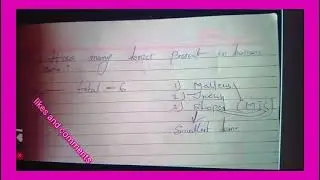 How many bones present in human
ear?
total - 6
1) Malleus
2) Incus
3) Stapes (MIS)
Smallest bone
likes and comments